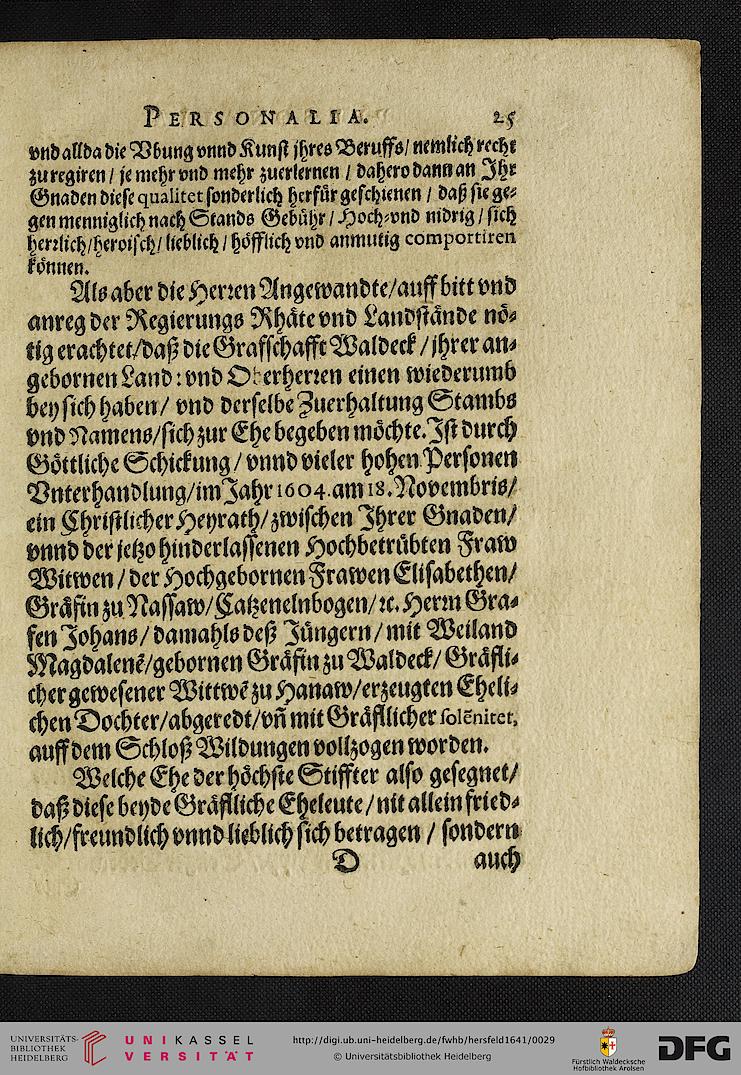 PERSONALIA. 25
vnd allda die Vbung vnnd Kunst jhres Beruffs/ nemlich recht
zu regiren / je mehr vnd mehr zuerlernen / dahero dann an Ihr
Gnaden diese qualitet sonderlich herfür geschienen / daß sie ge-
gen menniglich nach Stands Gebühr / Hoch-vnd nidrig / sich
herrlich/heroisch/ lieblich / höfflich vnd anmutig comportiren
können.
Als aber die Herren Angewandte/auff bitt vnd
anreg der Regierungs Rhäte vnd Landstände nö-
tig erachtet/daß die Graffschafft Waldeck / jhrer an-
gebornen Land: vnd Oberherren einen wiederumb
bey sich haben/ vnd derselbe Zuerhaltung Stambs
vnd Namens/sich zur Ehe begeben möchte. Ist durch
Göttliche Schickung / vnnd vieler hohen Personen
Vnterhandlung/im Jahr 1604. am 18. Novembris/
ein Christlicher Heyrath/ zwischen Ihrer Gnaden/
vnnd der jetzo hinderlassenen Hochbetrübten Fraw
Witwen / der Hochgebornen Frawen Elisabethen/
Gräfin zu Nassaw/ Catzenelnbogen/ ꝛc. Herrn Gra-
fen Johans / damahls deß Jüngern / mit Weiland
Magdalenē/gebornen Gräfin zu Waldeck/ Gräfli-
cher gewesener Wittwē zu Hanaw/erzeugten Eheli-
chen Dochter/abgeredt/vñ mit Gräfllicher solēnitet,
auff dem Schloß Wildungen vollzogen worden.
Welche Ehe der höchste Stiffter also gesegnet/
daß diese beyde Gräflliche Eheleute / nit allein fried-
lich/freundlich vnnd lieblich sich betragen / sondern
D auch
UNIVERSITÄTS-
BIBLIOTHEK
HEIDELBERG
UNIKASSEL
VERSITÄT
http://digi.ub.uni-heidelberg.de/fwhb/hersfeld1641/0029
© Universitätsbibliothek Heidelberg
Fürstlich Waldecksche
Hofbibliothek Arolsen
DFG